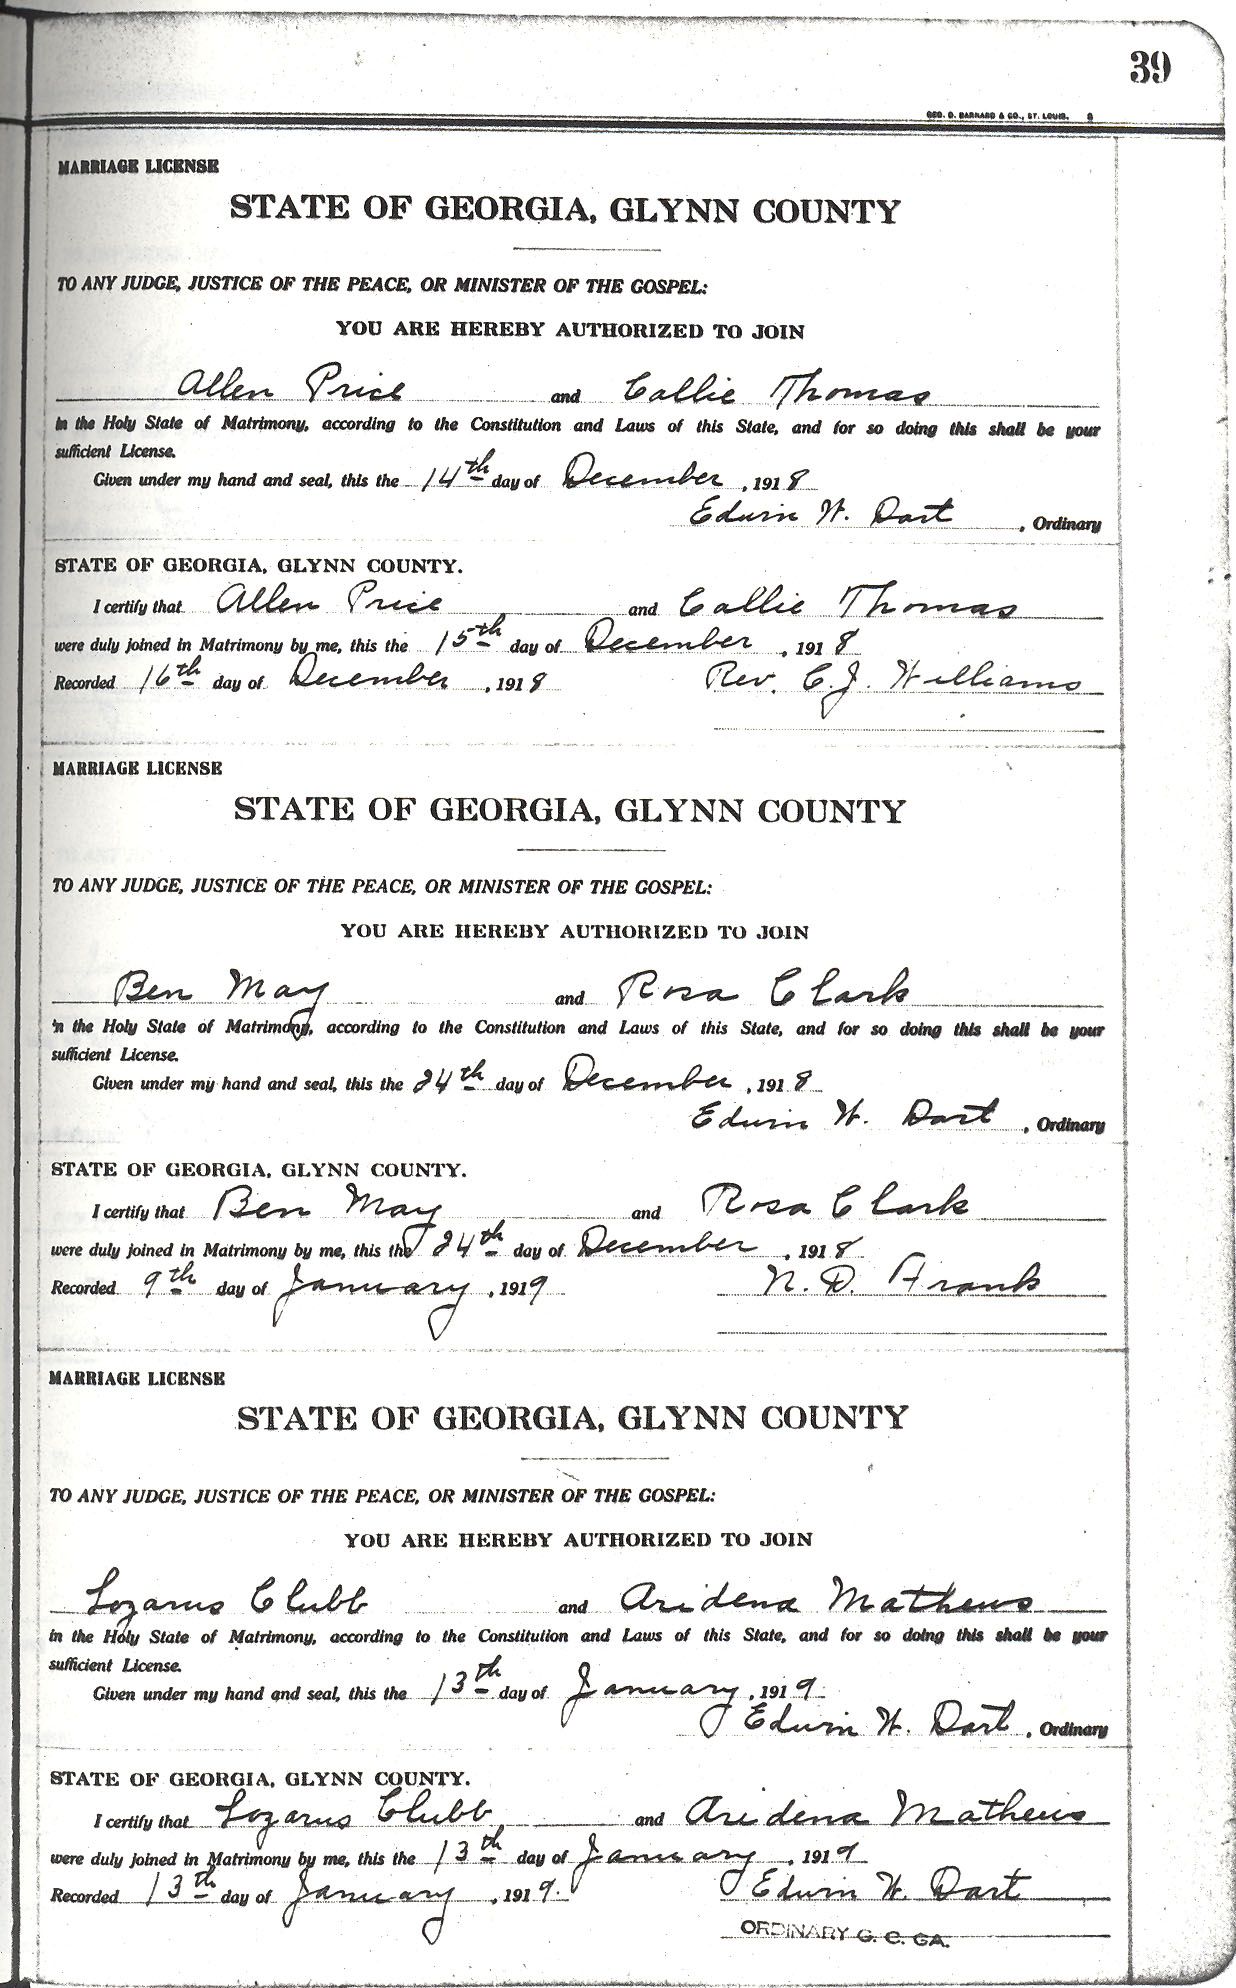 39
GEO. D. BARNARD & CO., ST. LOUIS. 8
MARRIAGE LICENSE
STATE OF GEORGIA, GLYNN COUNTY
TO ANY JUDGE, JUSTICE OF THE PEACE, OR MINISTER OF THE GOSPEL:
YOU ARE HEREBY AUTHORIZED TO JOIN
Allen Price and Callie Thomas
in the Holy State of Matrimony, according to the Constitution and Laws of this State, and for so doing this shall be your
sufficient License.
Given under my hand and seal, this the 14th day of December, 1918
Edwin W. Dart, Ordinary
STATE OF GEORGIA, GLYNN COUNTY.
I certify that Allen Price and Callie Thomas
were duly joined in Matrimony by me, this the 15th day of December, 1918
Recorded 16th day of December, 1918 Rev. C. J. Williams
MARRIAGE LICENSE
STATE OF GEORGIA, GLYNN COUNTY
TO ANY JUDGE, JUSTICE OF THE PEACE, OR MINISTER OF THE GOSPEL:
YOU ARE HEREBY AUTHORIZED TO JOIN
Ben May and Rosa Clark
in the Holy State of Matrimony, according to the Constitution and Laws of this State, and for so doing this shall be your
sufficient License.
Given under my hand and seal, this the 24th day of December, 1918
Edwin W. Dart, Ordinary
STATE OF GEORGIA, GLYNN COUNTY.
I certify that Ben May and Rosa Clark
were duly joined in Matrimony by me, this the 24th day of December, 1918
Recorded 9th day of January, 1919 N. D. Frank
MARRIAGE LICENSE
STATE OF GEORGIA, GLYNN COUNTY
TO ANY JUDGE, JUSTICE OF THE PEACE, OR MINISTER OF THE GOSPEL:
YOU ARE HEREBY AUTHORIZED TO JOIN
Lozarus Clubb and Aridena Mathews
in the Holy State of Matrimony, according to the Constitution and Laws of this State, and for so doing this shall be your
sufficient License.
Given under my hand and seal, this the 13th day of January, 1919.
Edwin W. Dart, Ordinary
STATE OF GEORGIA, GLYNN COUNTY.
I certify that Lozarus Clubb and Aridena Mathews
were duly joined in Matrimony by me, this the 13th day of January, 1919
Recorded 13th day of January, 1919. Edwin W. Dart
ORDINARY G. C. GA.